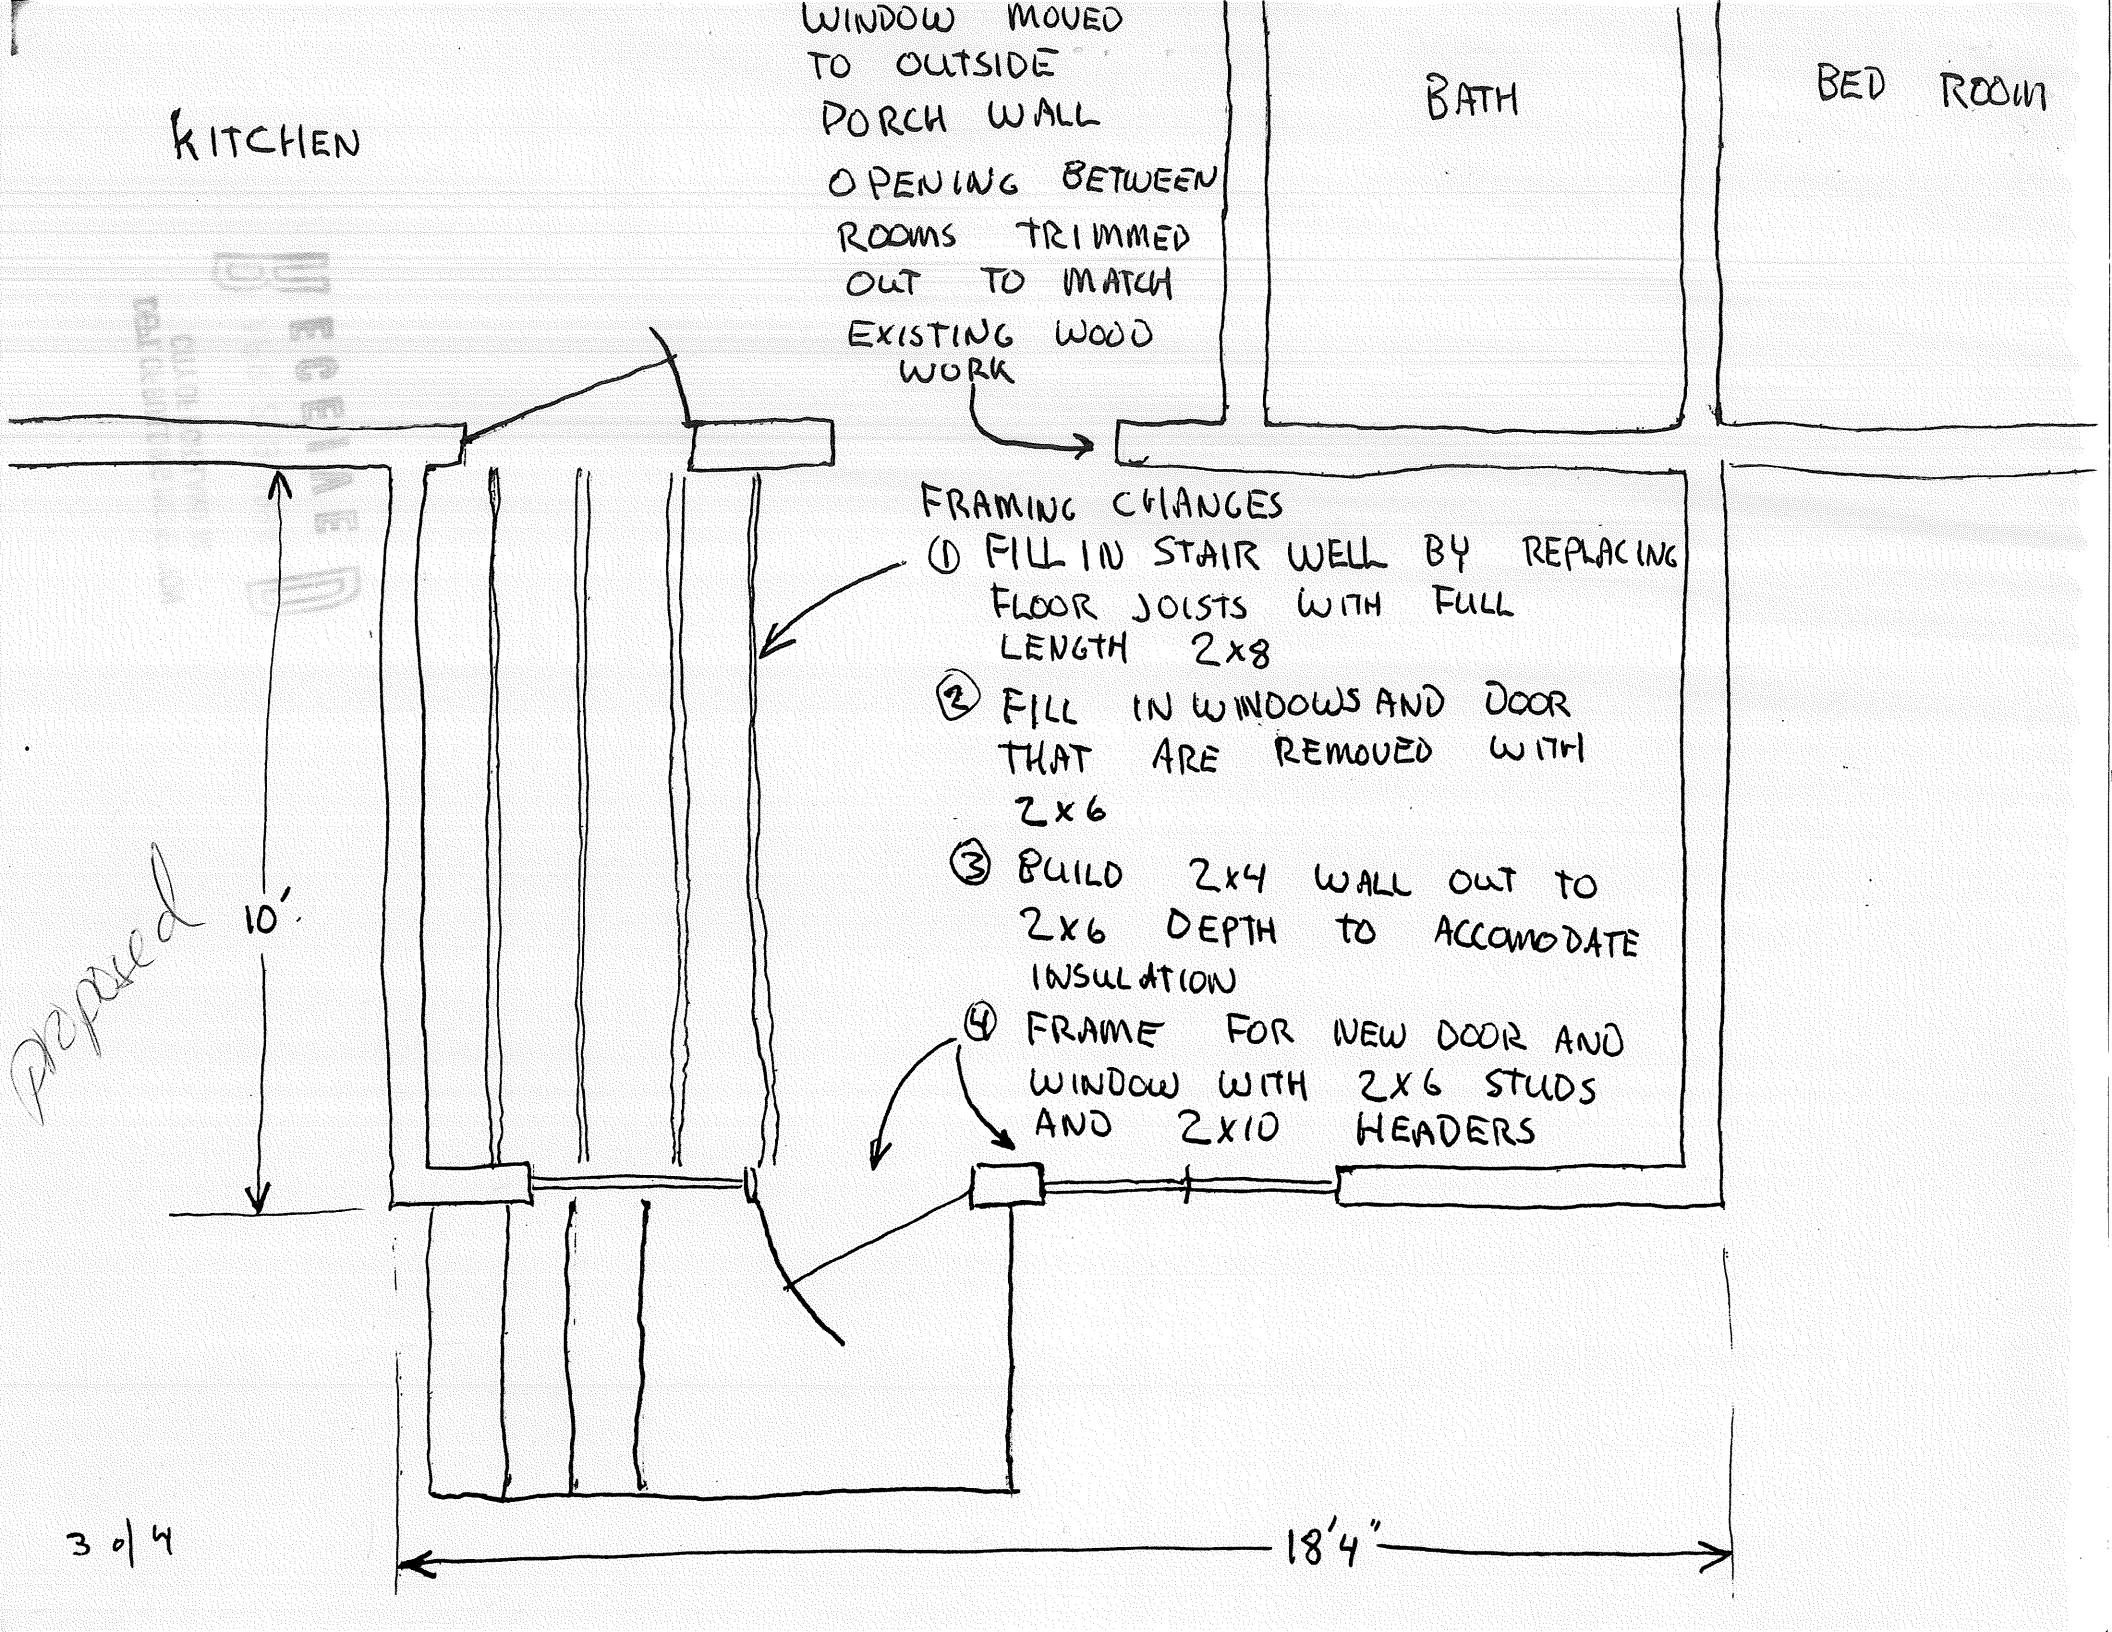 WINDOW MOVED
TO OUTSIDE
PORCH WALL
OPENING BETWEEN
ROOMS TRIMMED
OUT TO MATCH
EXISTING WOOD
WORK
KITCHEN
BATH
BED ROOM
RECEIVED
FRAMING CHANGES
① FILL IN STAIR WELL BY REPLACING
FLOOR JOISTS WITH FULL
LENGTH 2x8
② FILL IN WINDOWS AND DOOR
THAT ARE REMOVED WITH
2x6
③ BUILD 2x4 WALL OUT TO
2x6 DEPTH TO ACCOMODATE
INSULATION
④ FRAME FOR NEW DOOR AND
WINDOW WITH 2x6 STUDS
AND 2x10 HEADERS
10'
proposed
18'4"
3 of 4